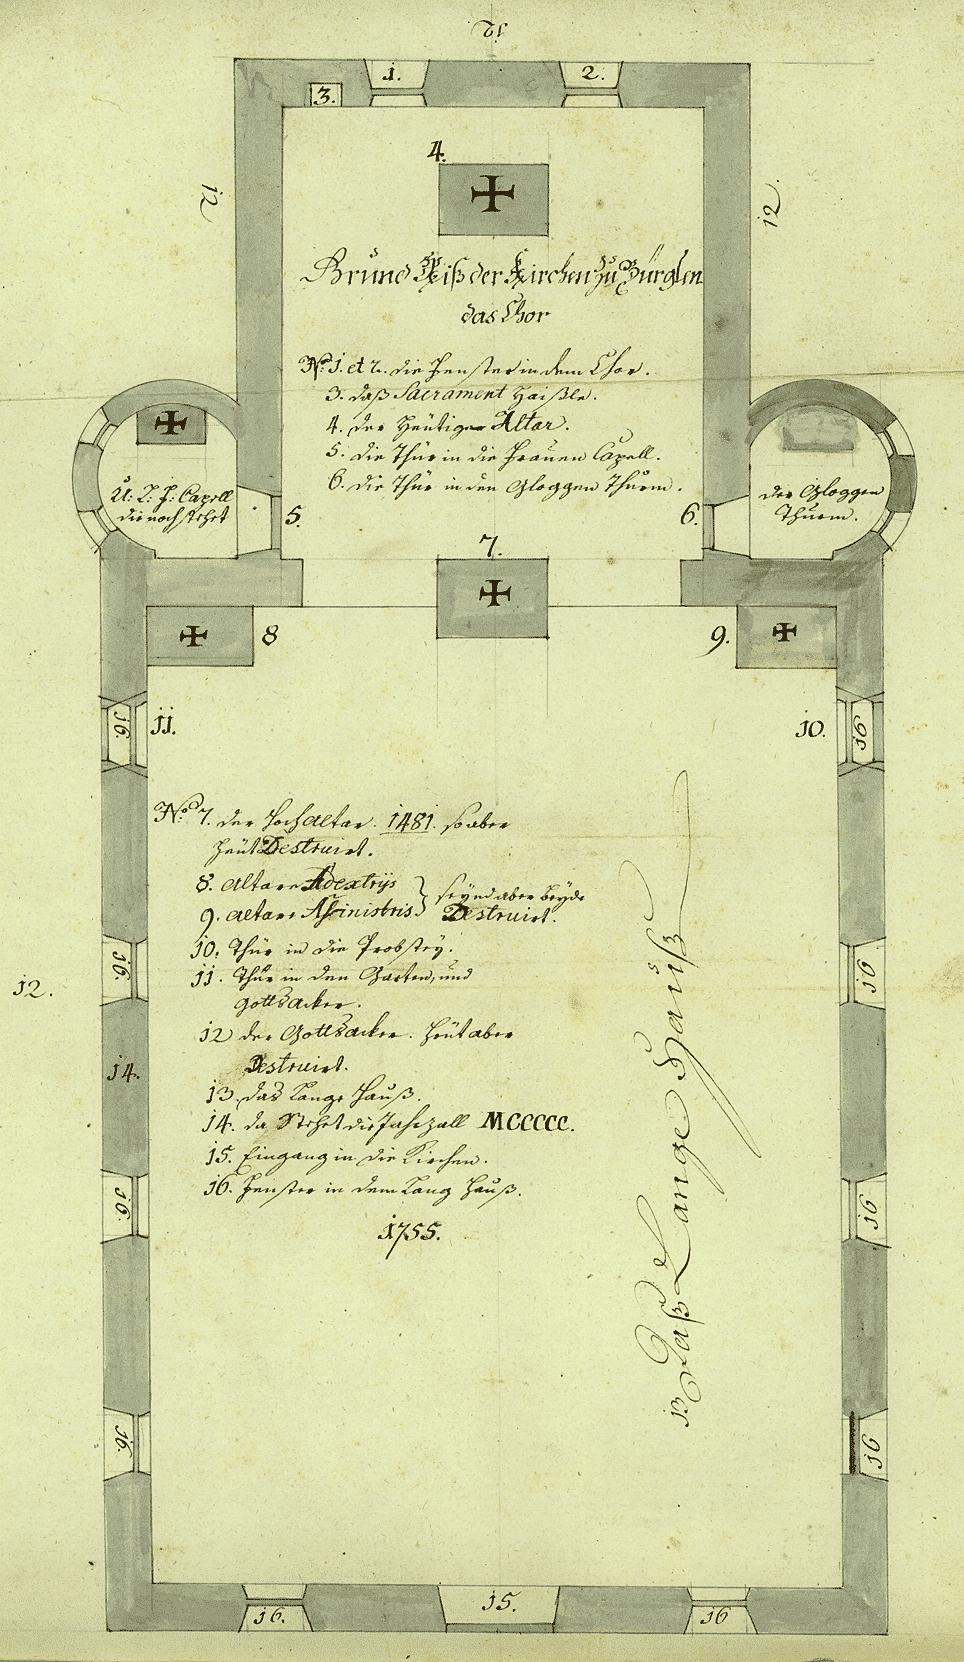 12
1.
2.
3.
4.
12
12.
Grund Riß der Kirchen zu Bürglen
das Chor
No. 1. et 2. die Fenster in dem Chor.
3. daß Sacrament Haißle.
4. der Heütige Altar.
5. die Thür in die Frauen Capell.
6. die Thür in den Gloggen Thurm.
U: L: F: Capell
die noch stehet
5.
6.
der Gloggen
Thurm.
7.
8
9.
16.
11.
10.
16
No. 7. der Hochaltar. 1481. so aber
heüt Destruirt.
8. Altare A dextris
9. Altare A sinistris
seynd aber beyde
Destruirt.
10. Thür in die Probstey.
11. Thür in den Garten, und
Gottsacker.
12 der Gottsacker. heüt aber
Destruirt.
13. das Lange Hauß.
14. da Stehet die Jahrzall MCCCCC.
15. Eingang in die Kirchen.
16. Fenster in dem Lang Hauß.
1755.
13 Daß Lange Hauß
16.
16
12.
14.
16.
16
16.
16
16.
15.
16